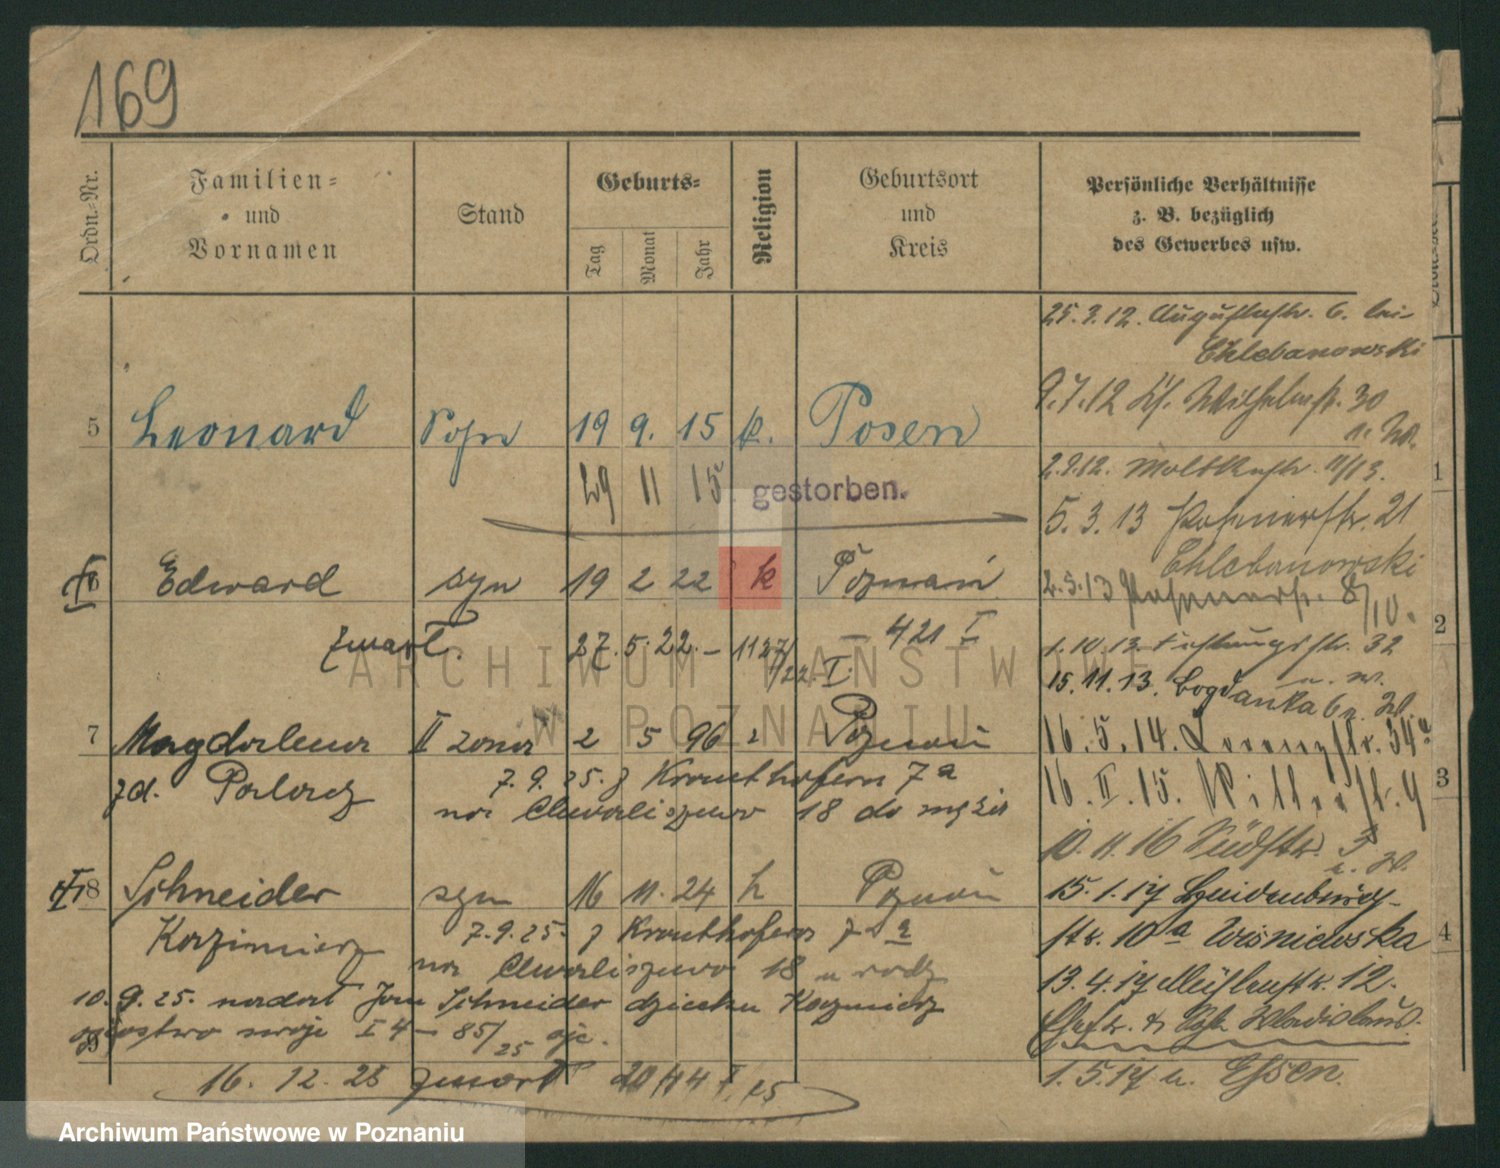 169
Ordn.-Nr.
Familien-
und
Vornamen
Stand
Geburts-
Tag
Monat
Jahr
Religion
Geburtsort
und
Kreis
Persönliche Verhältnisse
z. B. bezüglich
des Gewerbes usw.
5 Leonard Sohn 19 9. 15 k. Posen
29 11 15 gestorben.
6 Edward syn 19 2 22 k Poznań
zmarł. 27. 5. 22. – 421 I
7 Magdalena II żona 2 5 96 Poznań
zd. 7. 9. 25. z Krauthofera 7a
na Chwaliszewo 18 do męża
8 Schneider syn 16 11. 24 k Poznań
Kazimierz 7. 9. 25. z Krauthofera 7a
na Chwaliszewo 18 u rodz
10. 9. 25. nadał Jan Schneider dziecku Kazimierz
swoje I 4 – 85/25
9
16. 12. 25 zmarł
25. 3. 12. Augustastr. 6. bei
Chlebanowski
9. 7. 12 Wilhelmstr. 30
2. 9. 12. Moltkestr. 11/13.
5. 3. 13 Posenerstr. 21
Chlebanowski
2. 5. 13 Posenerstr. 8/10.
1. 10. 13. Festungsstr. 32
u. W.
15. 11. 13. Bogdanka 6 n. W.
16. 5. 14. Lorenzstr. 34a
16. II. 15.
10. 11. 16 Südstr. 3
u. W.
15. 1. 17 Hindenburg-
str. 10a Wisniewska
13. 4. 17 Mühlenstr. 12.
Wladislaus.
1. 5. 17 n. Essen.
1
2
3
4
ARCHIWUM PAŃSTWOWE
W POZNANIU
Archiwum Państwowe w Poznaniu